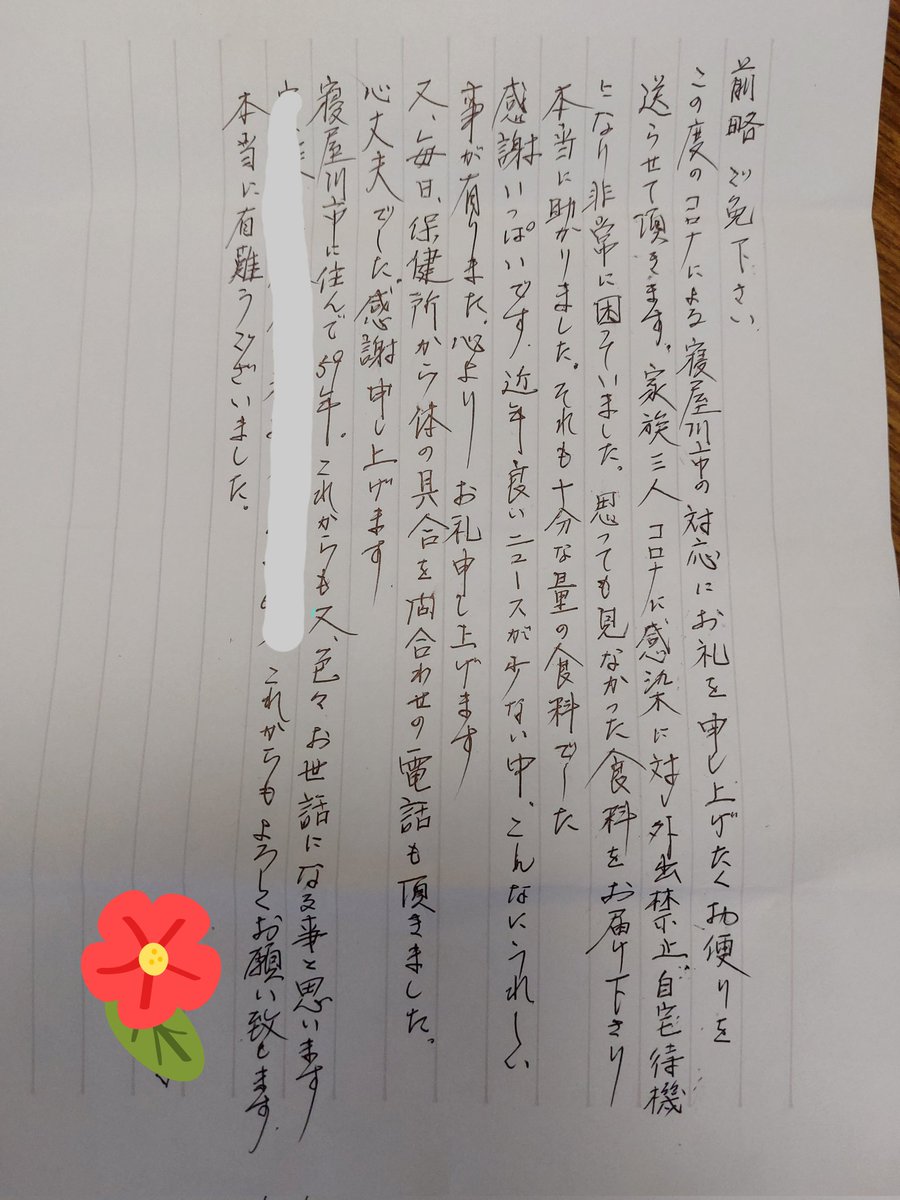 前略 ご免下さい
この度のコロナによる寝屋川市の対応にお礼を申し上げたくお便りを
送らせて頂きます。家族三人 コロナに感染に対し外出禁止、自宅待機
となり非常に困っていました。思っても見なかった食料をお届け下さり
本当に助かりました。それも十分な量の食料でした
感謝いっぱいです。近年良いニュースが少ない中、こんなにうれしい
事が有りました。心よりお礼申し上げます
又、毎日、保健所から体の具合を問合わせの電話も頂きました。
心丈夫でした。感謝申し上げます
寝屋川市に住んで59年。これからも又、色々お世話になる事と思います
これからもよろしくお願い致します
本当に有難うございました。